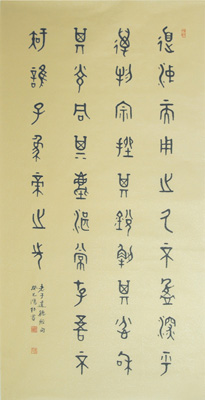 道沖而用之久不盈深乎
萬物宗挫其銳解其忿和
其光同其塵湛常存吾不
知誰子象帝之先
老子道